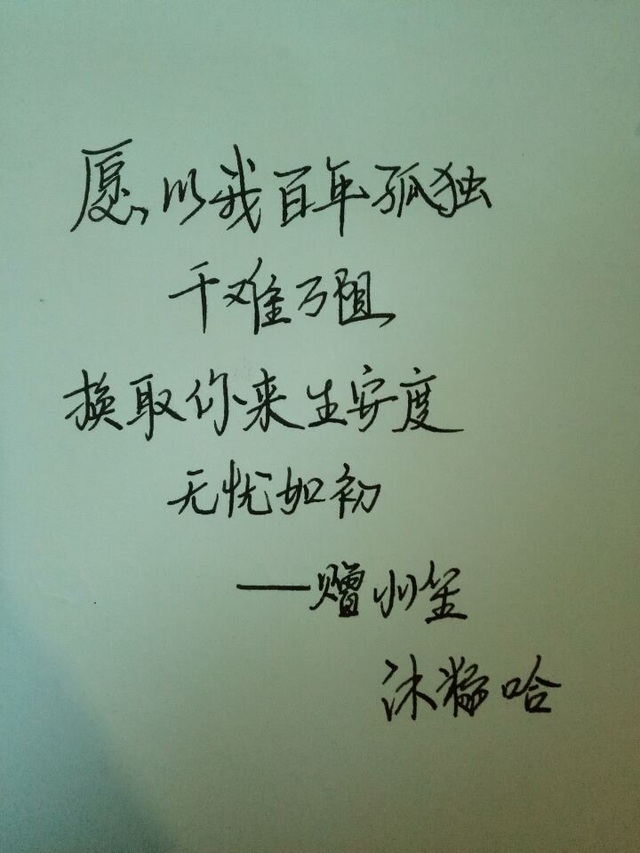 愿以我百年孤独
千难万阻
换取你来生安度
无忧如初
——赠小笙
沐
哈